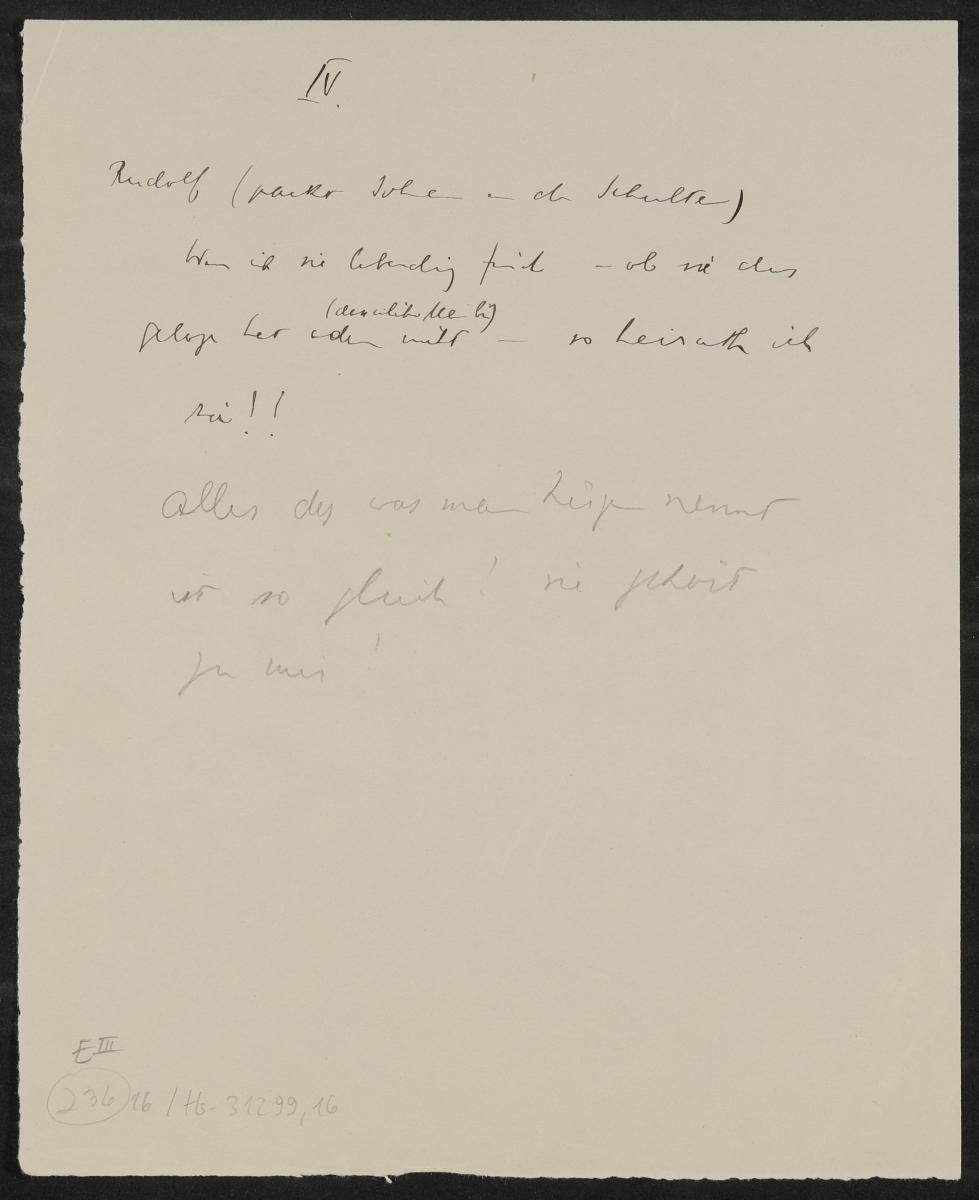 IV.
Rudolf (packt John an der Schulter)
Wenn ich sie lebendig find – ob sie das
gelogen hat oder nicht – so heirath ich
sie!!
Alles das was man Lügen nennt
ist so gleich! sie gehört
zu mir!
E III
236 16 / Hs-31299,16